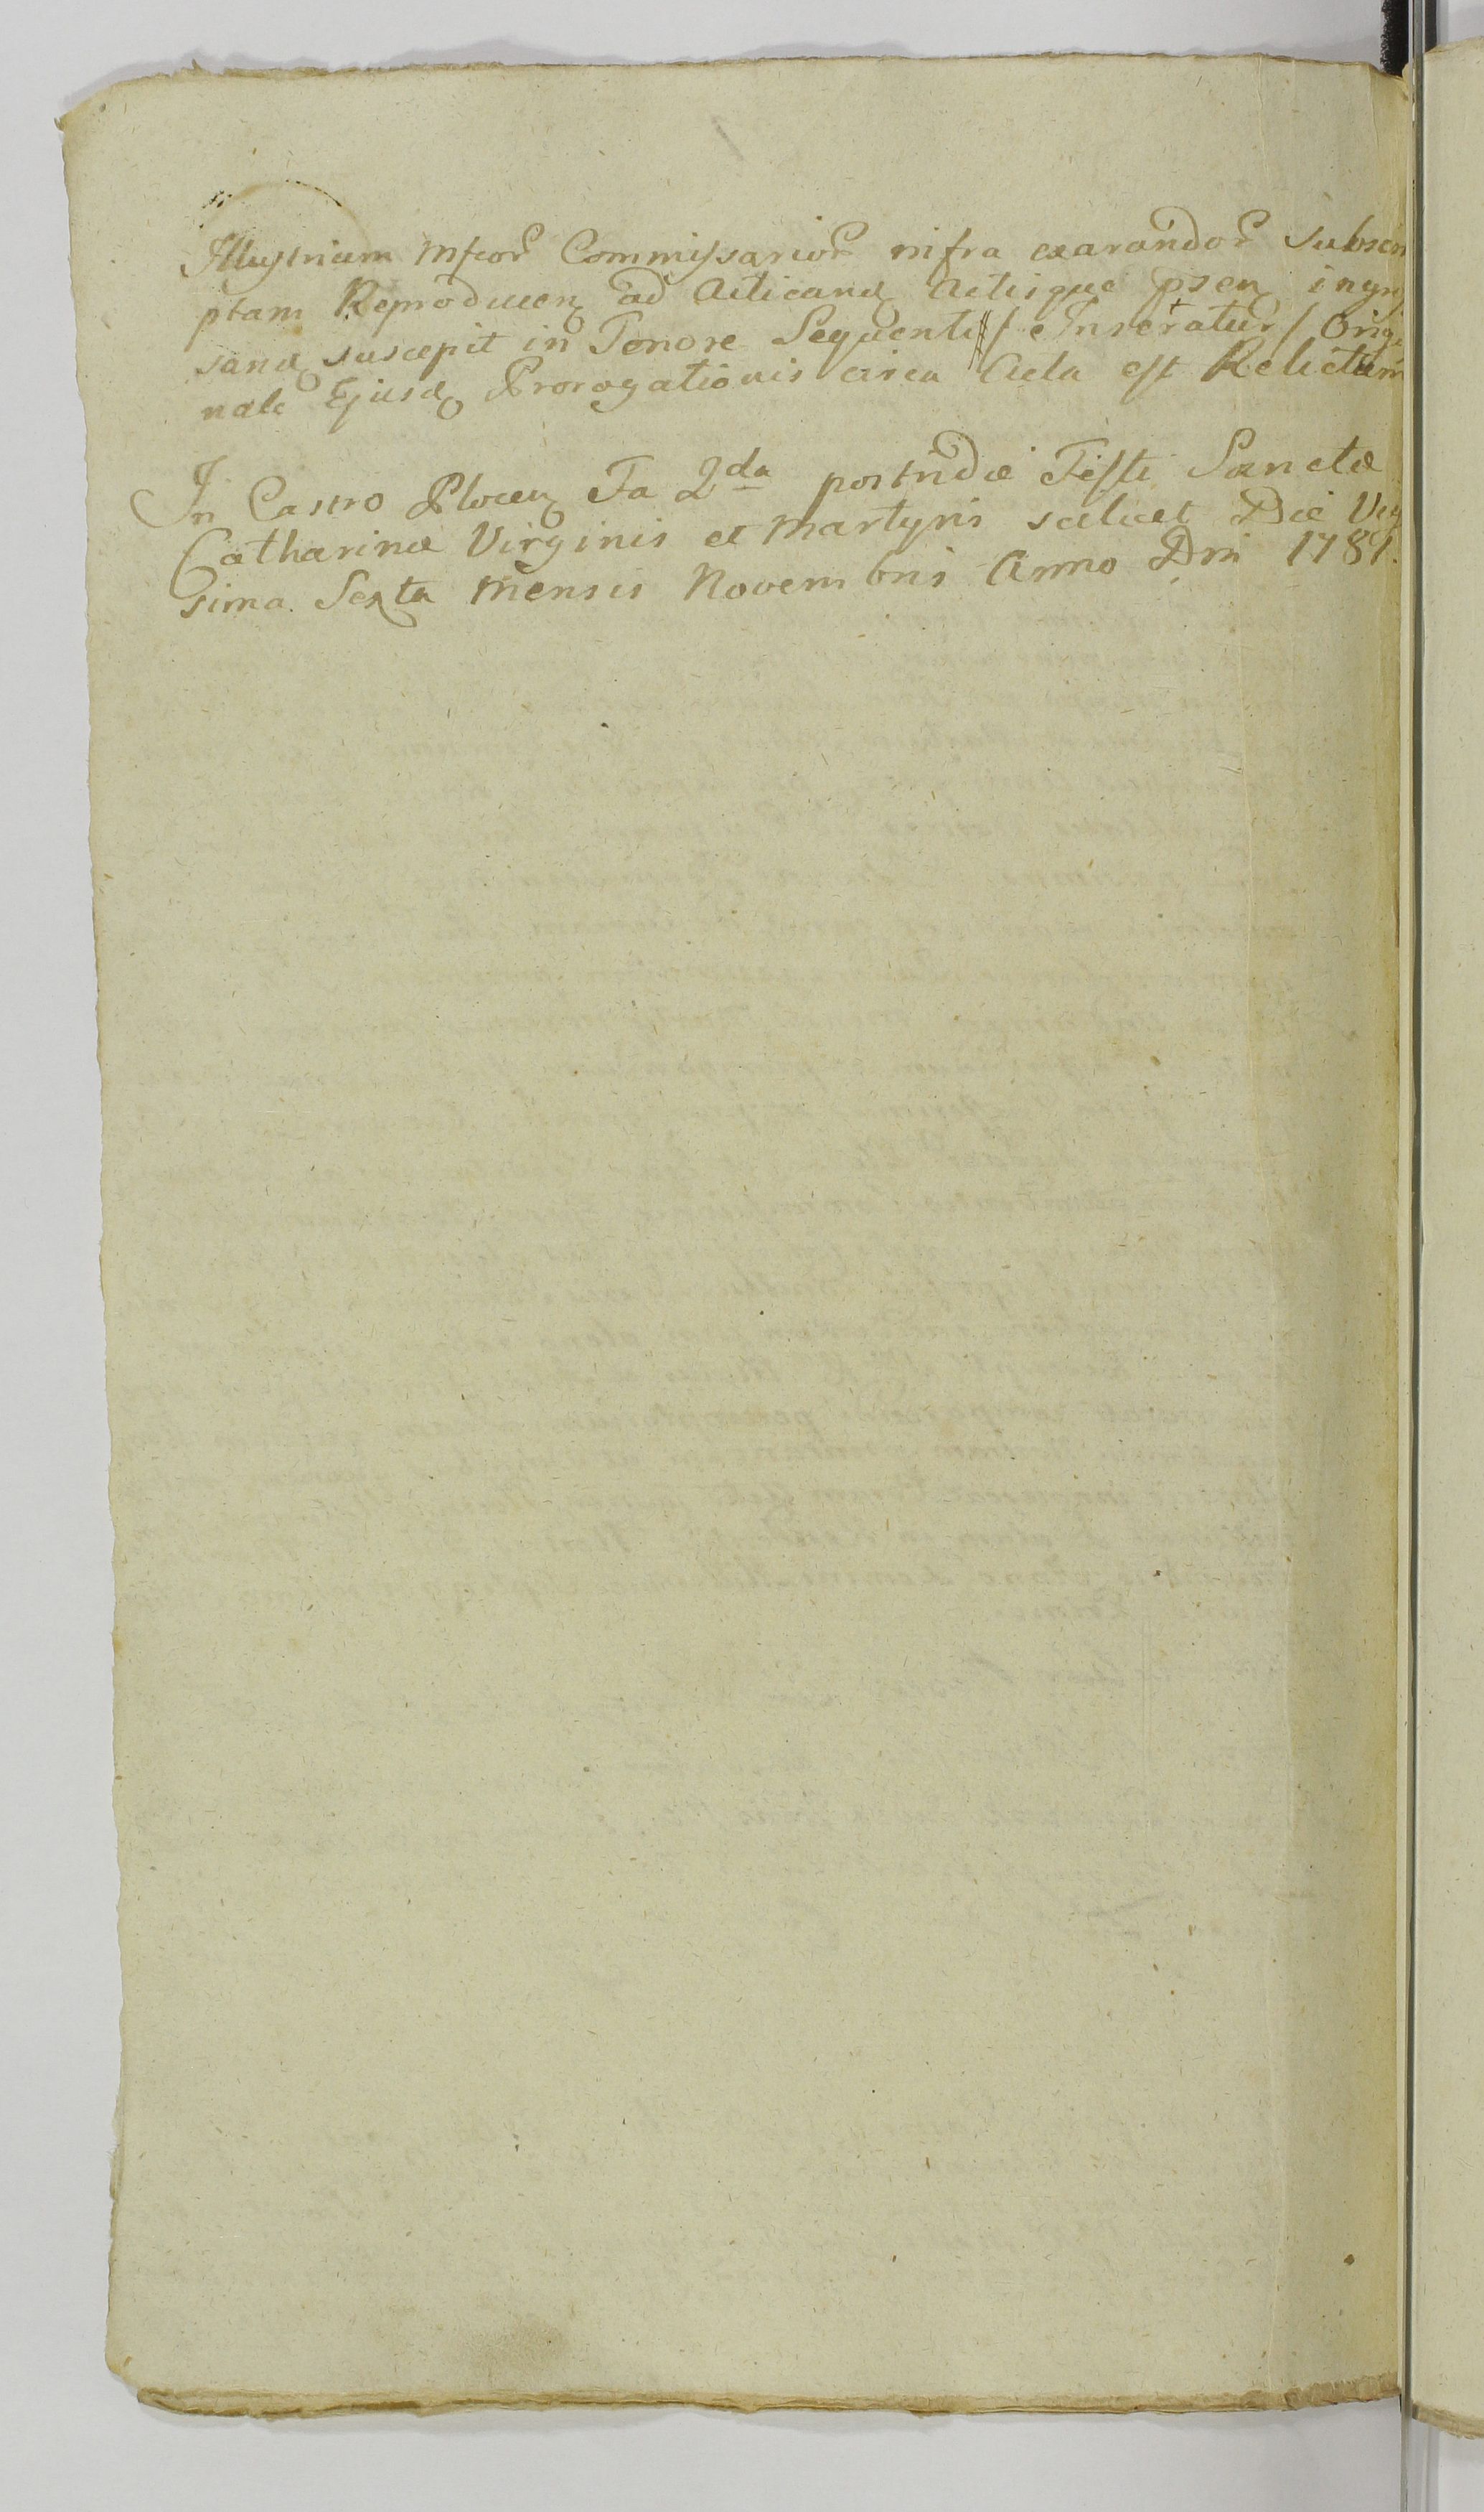 Illustrium Mfcor Commissarior infra exarandor Subscri
ptam Reproducen ad Acticand Actisque psen ingros
sand suscepit in Tenore Sequenti / Inseratur / Origi
nale Ejusd Prorogationis circa Acta est Relictum
In Castro Plocen Fa 2da postridie Festi Sanctæ
Catharinæ Virginis et Martyris scilicet Die Vig
sima Sexta Mensis Novembris Anno Dni 1781.